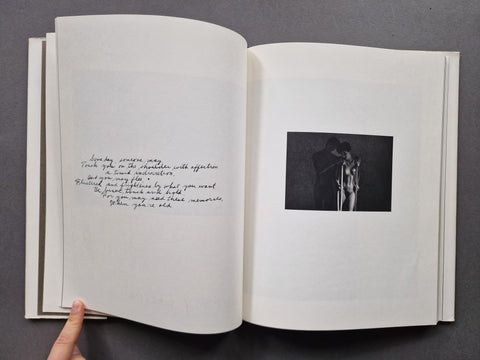 Someday someone may
Touch you on the shoulder with affection
a timid indiscretion,
But you may flee
Flustered and frightened by what you want
Be brave, touch and hold
For you may need these memories,
When you're old